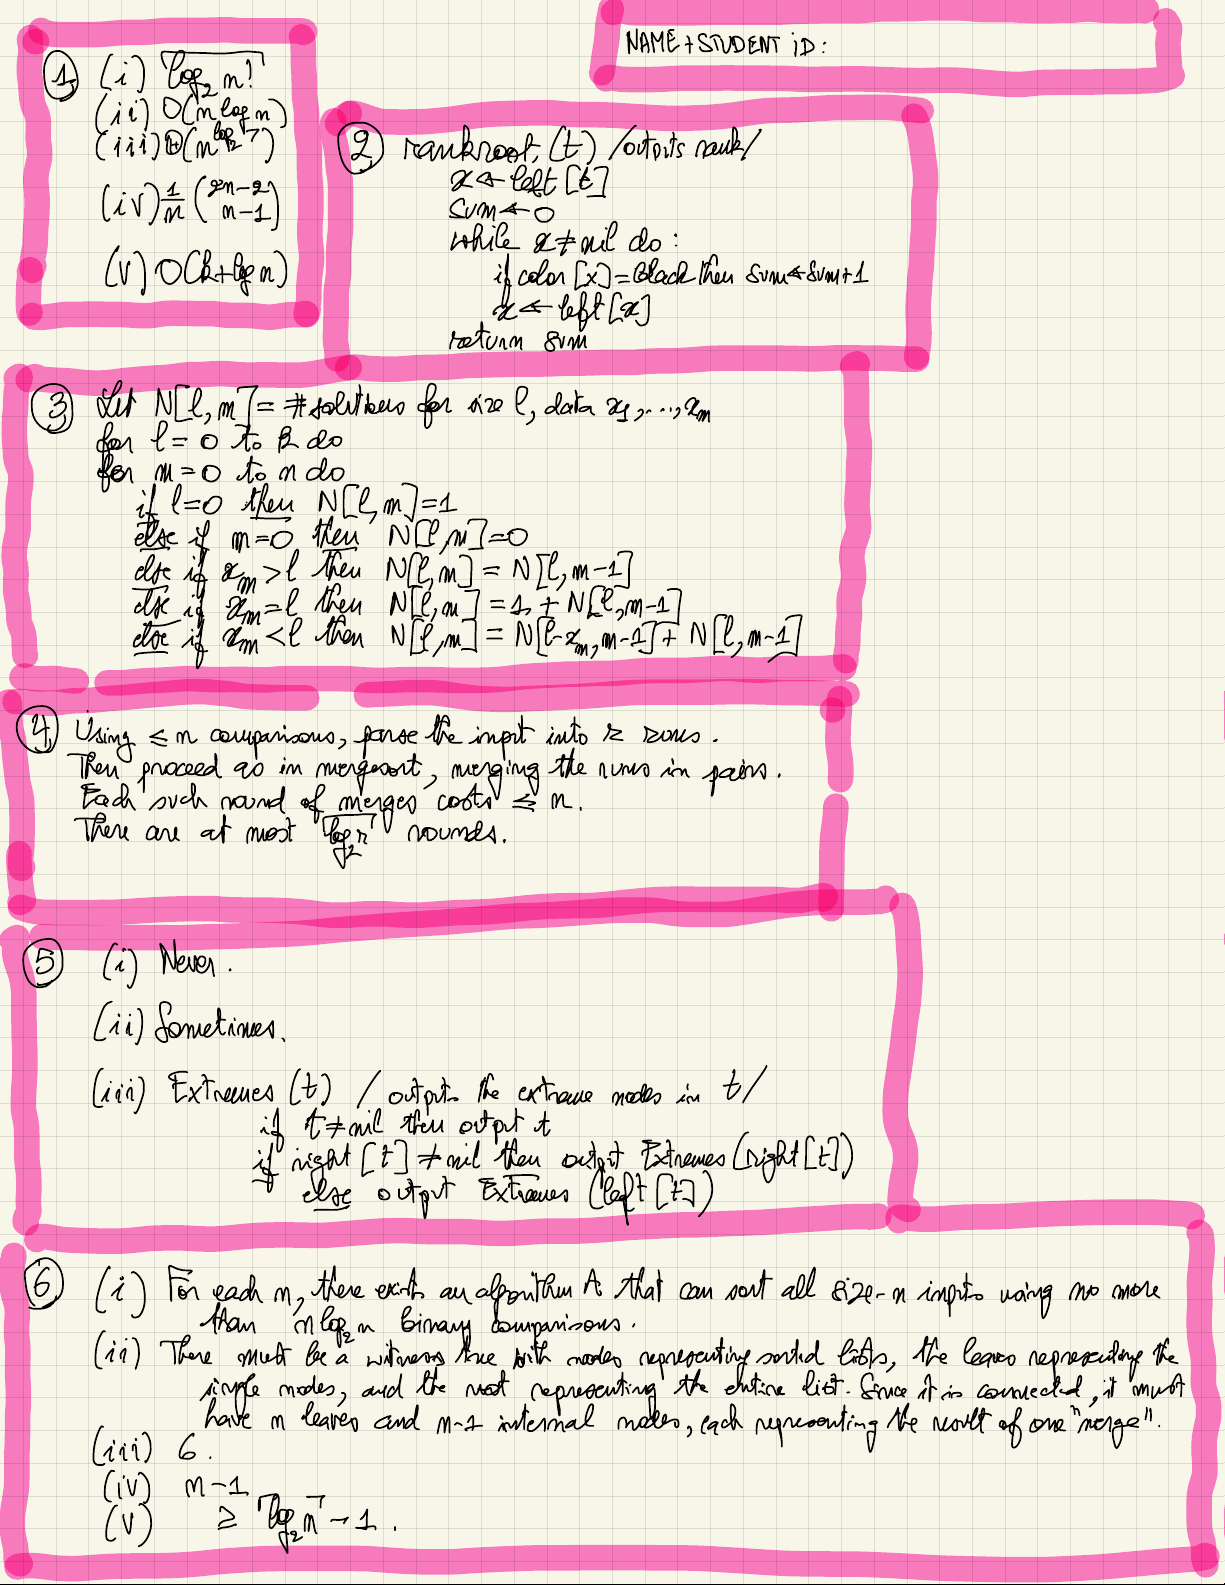 NAME + STUDENT iD:
① (i) ⌈log₂ n!⌉
(ii) O(n log n)
(iii) Θ(n^{log₂ 7})
(iv) 1/n (2n-2 n-1)
(v) O(k + log n)
② rankroot (t) /outputs rank/
x ← left [t]
sum ← 0
while x ≠ nil do :
if color [x] = black then sum ← sum + 1
x ← left [x]
return sum
③ Let N[l, m] = # solutions for size l, data x₁, ..., xₘ
for l = 0 to k do
for m = 0 to n do
if l = 0 then N[l, m] = 1
else if m = 0 then N[l, m] = 0
else if xₘ > l then N[l, m] = N[l, m-1]
else if xₘ = l then N[l, m] = 1 + N[l, m-1]
else if xₘ < l then N[l, m] = N[l-xₘ, m-1] + N[l, m-1]
④ Using ≤ n comparisons, parse the input into r runs.
Then proceed as in mergesort, merging the runs in pairs.
Each such round of merges costs ≤ n.
There are at most ⌈log₂ r⌉ rounds.
⑤ (i) Never.
(ii) Sometimes.
(iii) Extremes (t) / outputs the extreme nodes in t/
if t ≠ nil then output t
if right [t] ≠ nil then output Extremes (right [t])
else output Extremes (left [t])
⑥ (i) For each n, there exists an algorithm A that can sort all size-n inputs using no more
than n log₂ n binary comparisons.
(ii) There must be a witness tree with nodes representing sorted lists, the leaves representing the
single nodes, and the root representing the entire list. Since it is connected, it must
have n leaves and n-1 internal nodes, each representing the result of one "merge".
(iii) 6.
(iv) n-1
(v) ≥ ⌈log₂ n⌉ - 1.